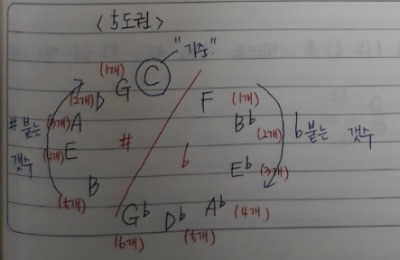 <5도권>
"기준"
C
G (1개)
D (2개)
A (3개)
E (4개)
B (5개)
G♭ (6개)
D♭ (5개)
A♭ (4개)
E♭ (3개)
B♭ (2개)
F (1개)
#
b
# 붙는 갯수
b 붙는 갯수